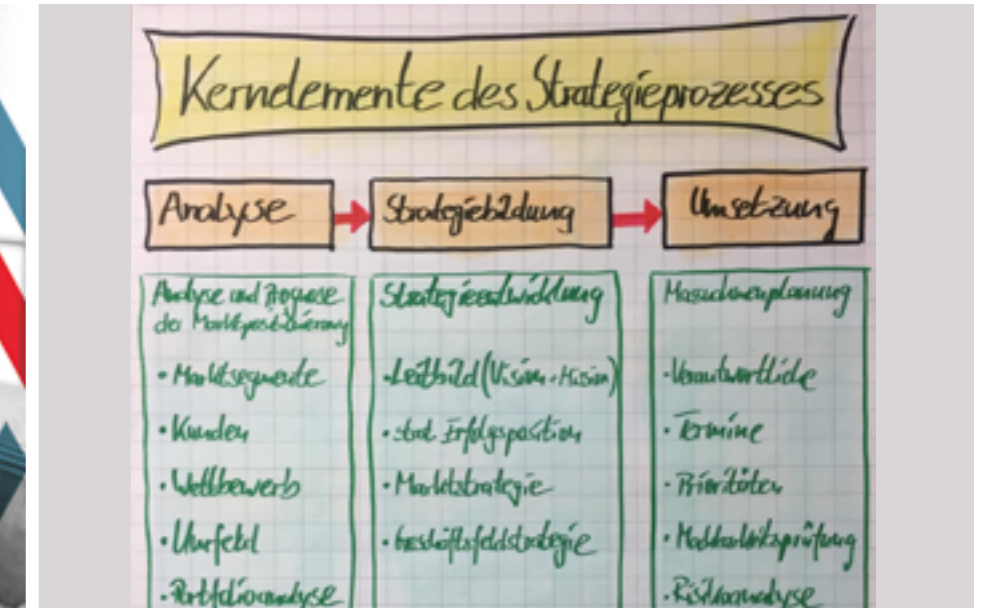 Kernelemente des Strategieprozesses
Analyse
Strategiebildung
Umsetzung
Analyse und Prognose
der Marktpositionierung
• Marktsegmente
• Kunden
• Wettbewerb
• Umfeld
• Portfolioanalyse
Strategieentwicklung
• Leitbild (Vision, Mission)
• strat. Erfolgsposition
• Marktstrategie
• Geschäftsfeldstrategie
Massnahmenplanung
• Verantwortliche
• Termine
• Prioritäten
• Machbarkeitsprüfung
• Risikoanalyse